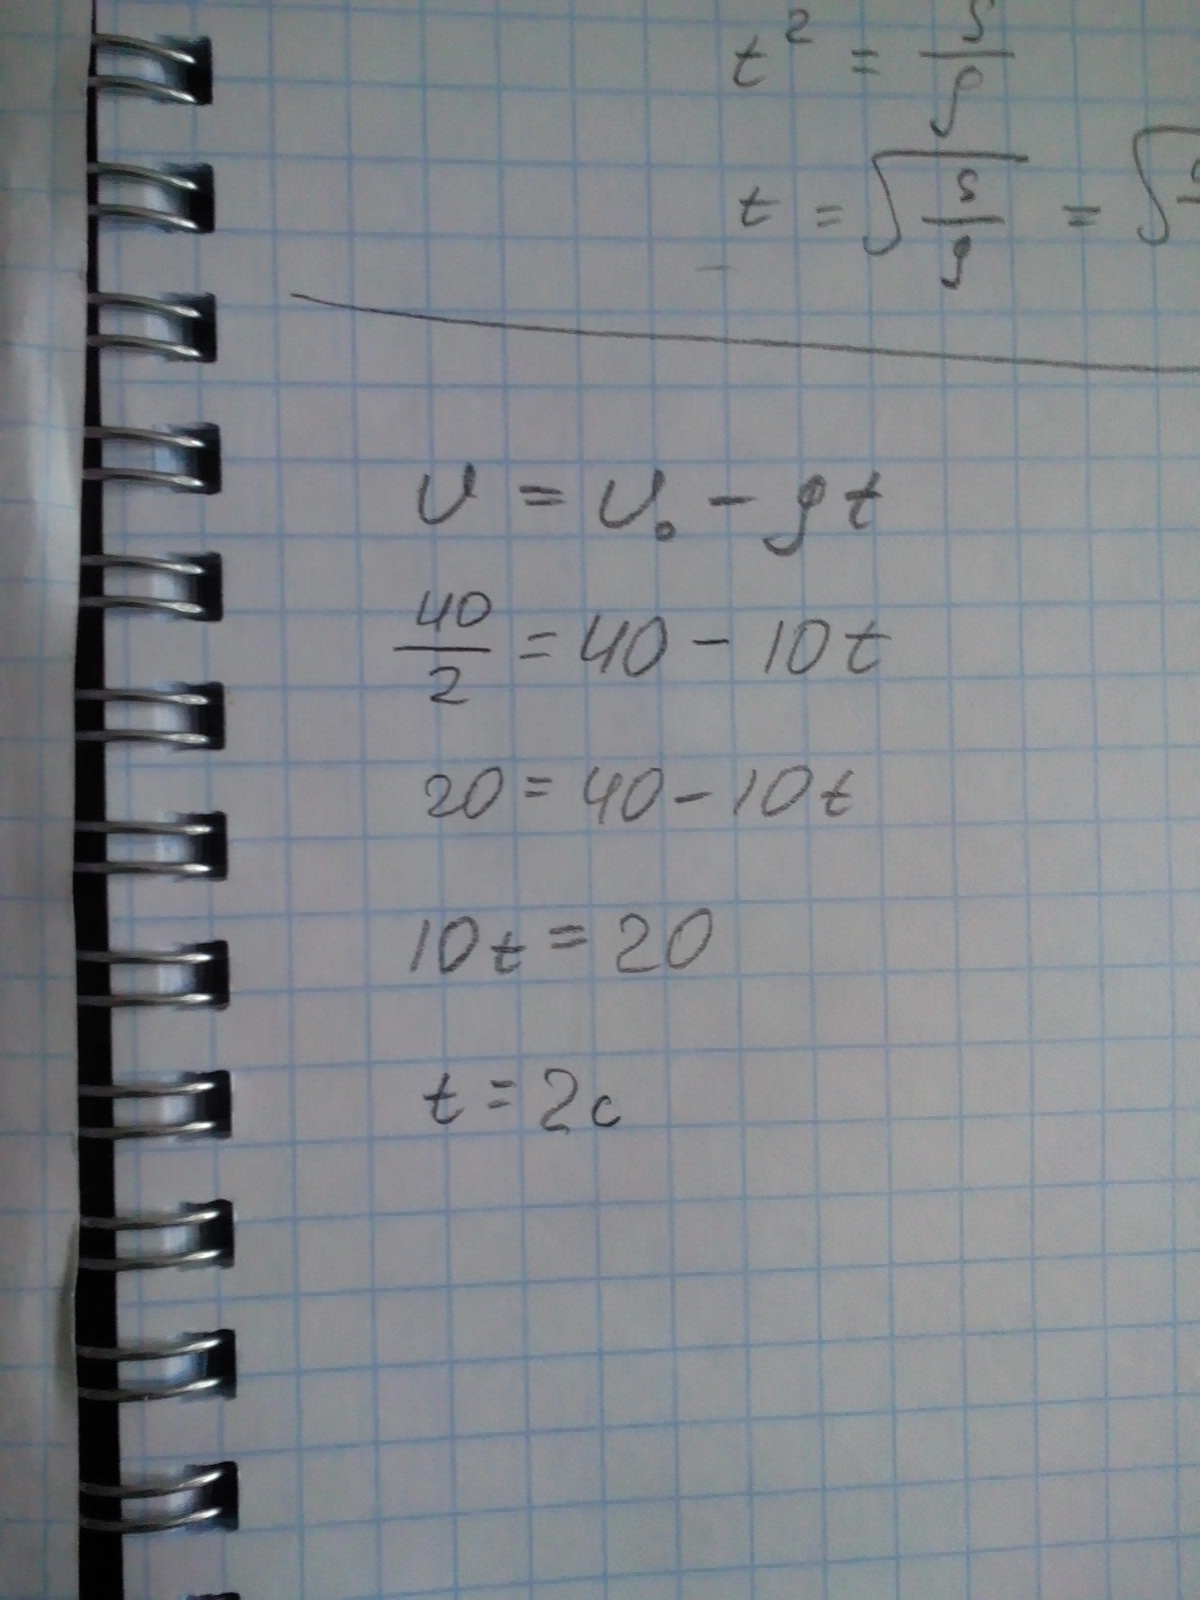 t² = S/g
t = √(S/g) = √
υ = υ₀ - gt
40/2 = 40 - 10t
20 = 40 - 10t
10t = 20
t = 2с